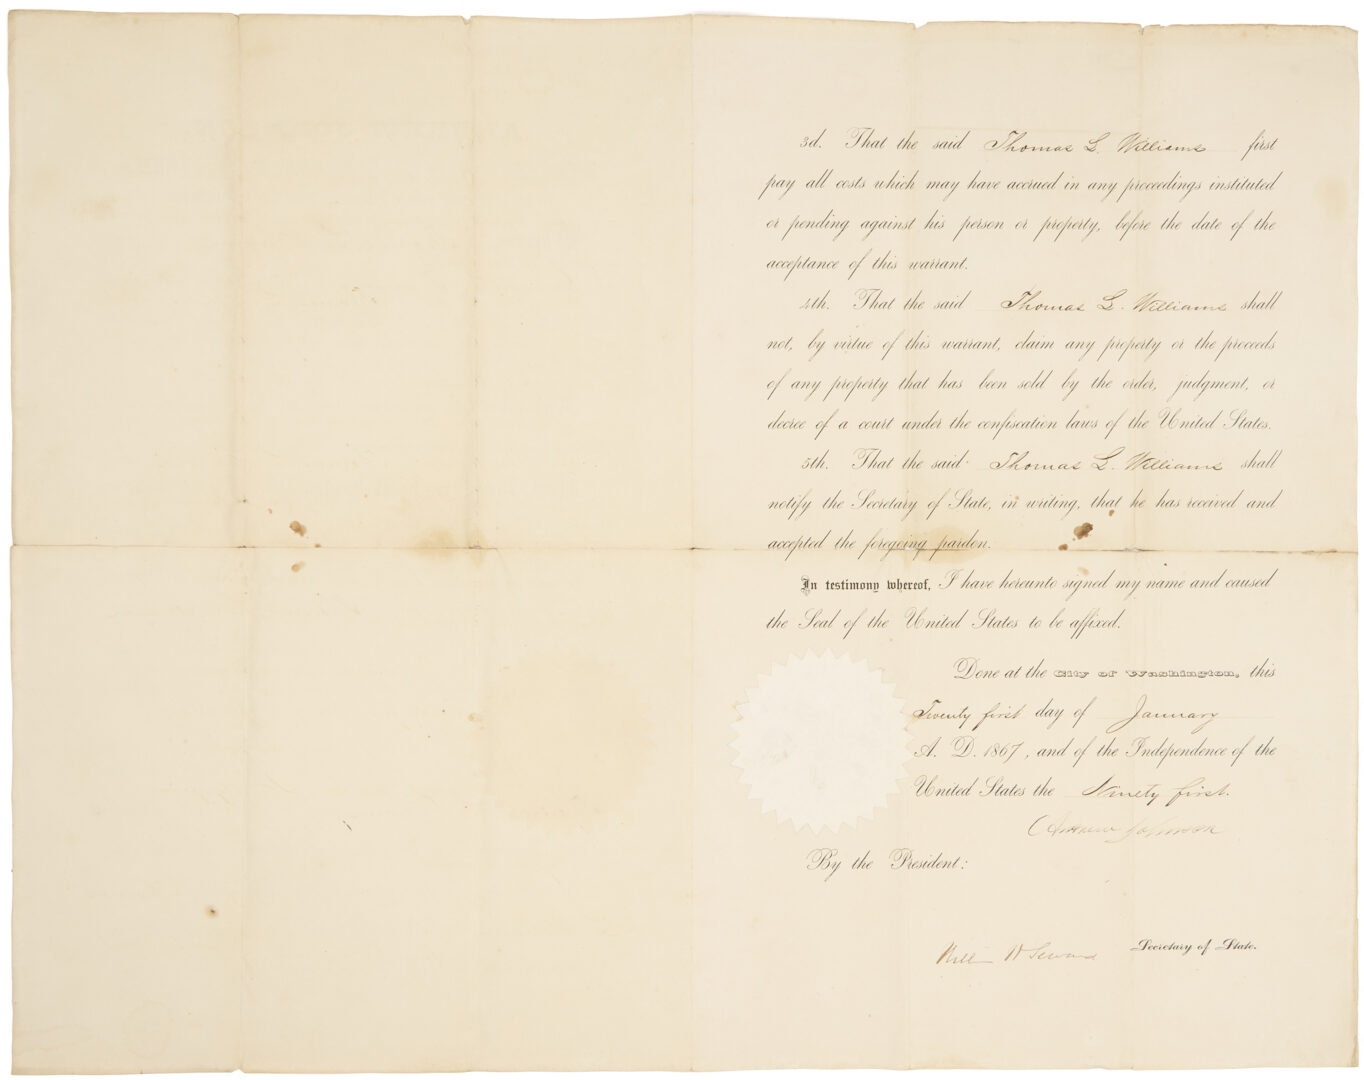 3d. That the said Thomas L. Williams first
pay all costs which may have accrued in any proceedings instituted
or pending against his person or property, before the date of the
acceptance of this warrant.
4th. That the said Thomas L. Williams shall
not, by virtue of this warrant, claim any property or the proceeds
of any property that has been sold by the order, judgment, or
decree of a court under the confiscation laws of the United States.
5th. That the said Thomas L. Williams shall
notify the Secretary of State, in writing, that he has received and
accepted the foregoing pardon.
In testimony whereof, I have hereunto signed my name and caused
the Seal of the United States to be affixed.
Done at the City of Washington, this
Twenty first day of January
A. D. 1867, and of the Independence of the
United States the Ninety first.
Andrew Johnson
By the President:
William H Seward Secretary of State.